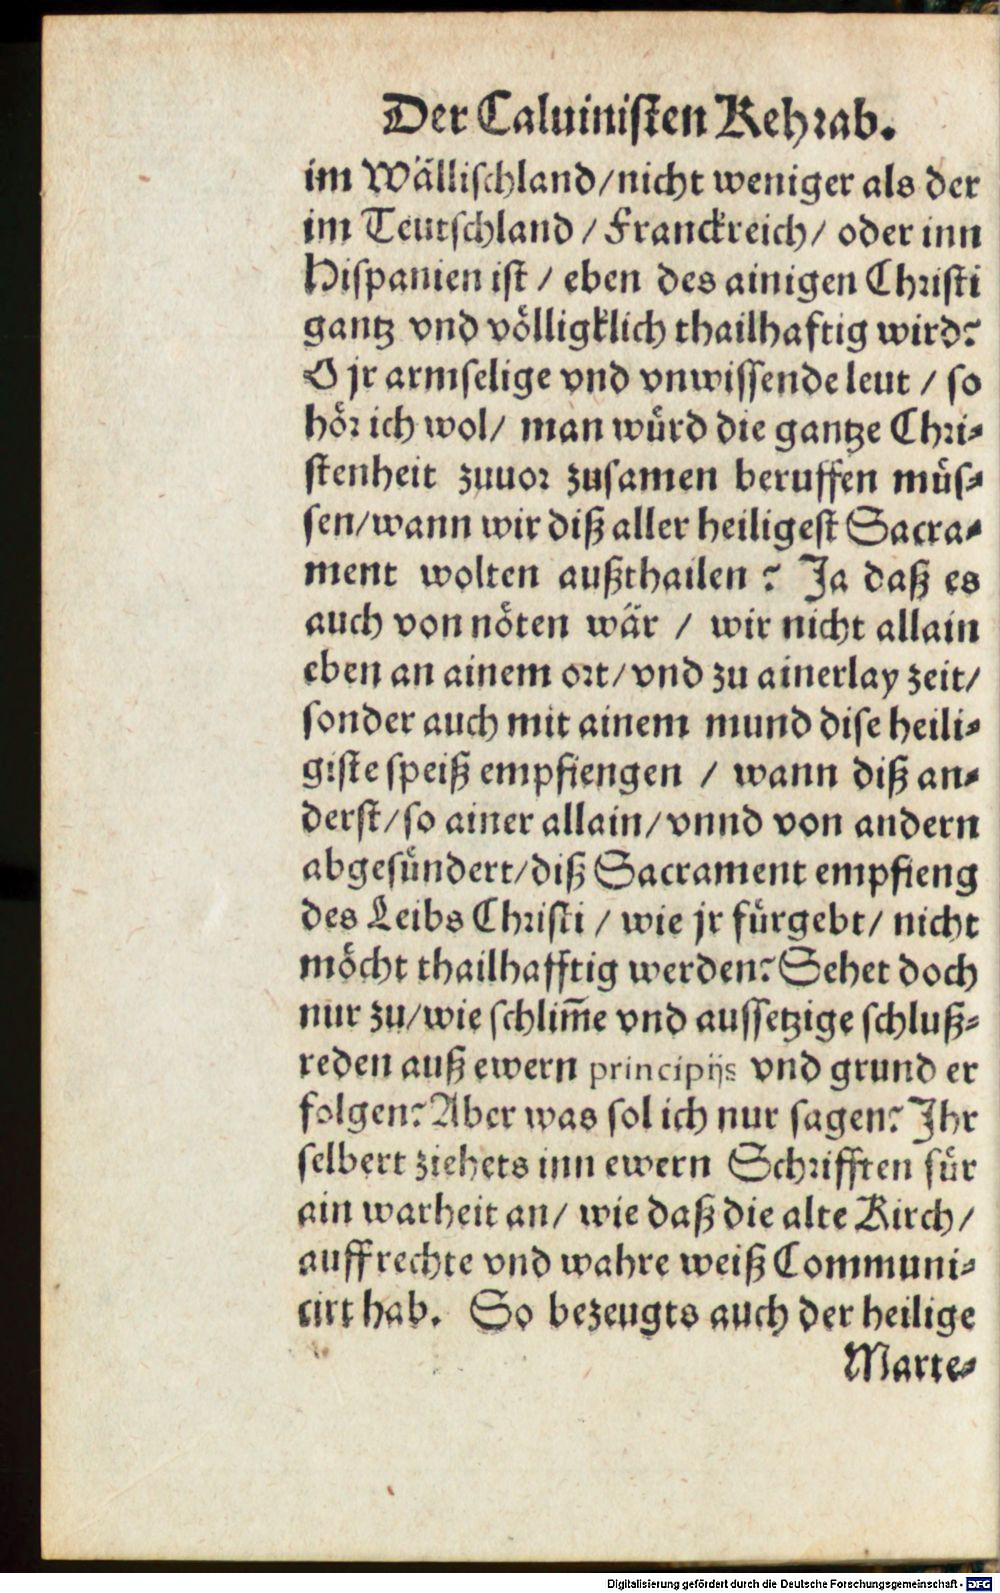 Der Caluinisten Kehrab.
im Wällischland/nicht weniger als der
im Teutschland / Franckreich/ oder inn
Hispanien ist / eben des ainigen Christi
gantz vnd völligklich thailhaftig wird?
O jr armselige vnd vnwissende leut / so
hör ich wol/ man würd die gantze Chri-
stenheit zuuor zusamen beruffen müs-
sen/wann wir diß aller heiligest Sacra-
ment wolten außthailen ? Ja daß es
auch von nöten wär / wir nicht allain
eben an ainem ort/vnd zu ainerlay zeit/
sonder auch mit ainem mund dise heili-
giste speiß empfiengen / wann diß an-
derst/so ainer allain/vnnd von andern
abgesündert/diß Sacrament empfieng
des Leibs Christi / wie jr fürgebt/ nicht
möcht thailhafftig werden? Sehet doch
nur zu/wie schlim̃e vnd aussetzige schluß-
reden auß ewern principijs vnd grund er
folgen? Aber was sol ich nur sagen? Ihr
selbert ziehets inn ewern Schrifften für
ain warheit an/ wie daß die alte Kirch/
auffrechte vnd wahre weiß Communi-
cirt hab. So bezeugts auch der heilige
Marte-
Digitalisierung gefördert durch die Deutsche Forschungsgemeinschaft - DFG